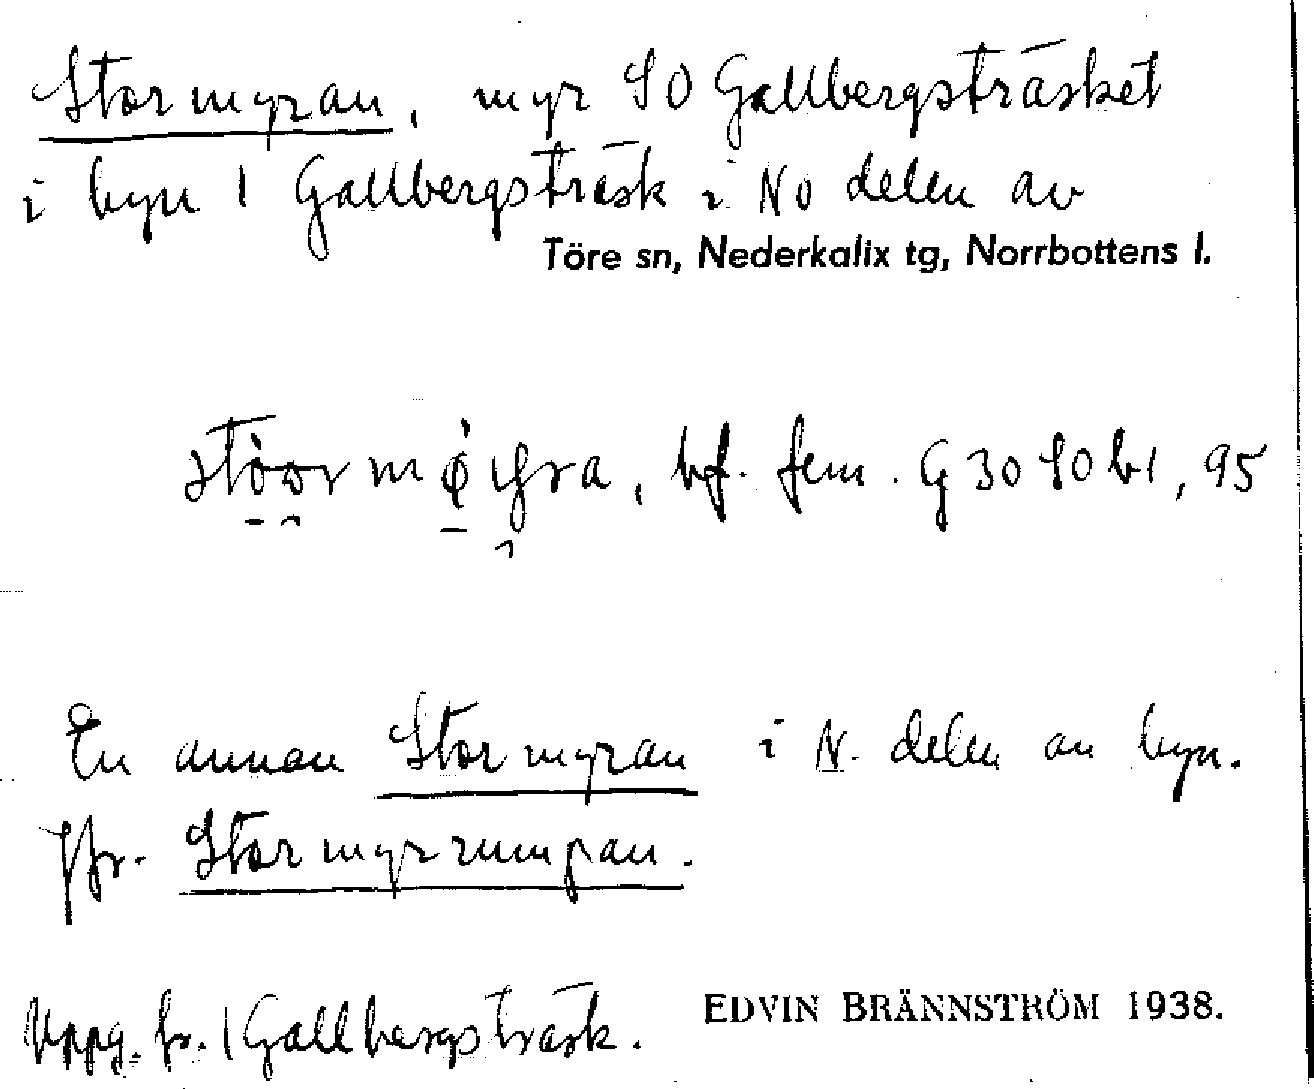 Stormyran, myr SO Gallbergsträsket
i byn 1 Gallbergsträsk i NO delen av
Töre sn, Nederkalix tg, Norrbottens l.
bf. fem. G 30 SO b1, 95
En annan Stormyran i N. delen av byn.
Jfr. Stormyrrumpan.
Uppg. fr. 1 Gallbergsträsk. EDVIN BRÄNNSTRÖM 1938.